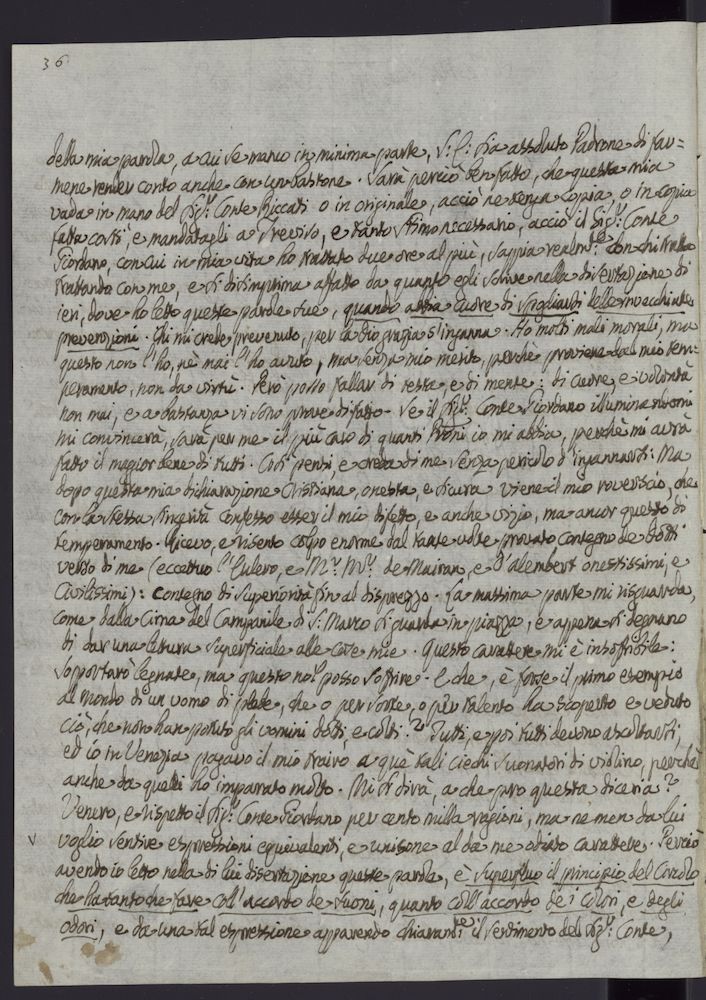 36
della mia parola, a cui se manco in minima parte, V: S: sia assoluto Padrone di far=
mene render conto anche con un bastone. Sarà perciò ben fatto, che questa mia
vada in mano del Sig.r Conte Riccati o in originale, acciò ne tenga copia, o in copia
fatta costì, e mandatagli a Treviso, e tanto stimo necessario, acciò il Sig.r Conte
Giordano, con cui in mia vita ho trattato due ore al più, sappia realm.te con chi tratta
trattando con me, e si disinganni affatto da quanto egli scrive nella disertazione di
ieri, dove ho letto queste parole sue, quando abbia cuore di spogliarsi delle invecchiate
prevenzioni. Chi mi crede prevenuto, per la Dio grazia s'inganna. Ho molti mali morali, ma
questo non l'ho, nè mai l'ho avuto, ma senza mio merito, perchè proviene dal mio tem=
peramento, non da virtù. Però posso fallar di testa, e di mente: di cuore, e volontà
non mai, e a bastanza vi sono prove di fatto. Se il Sig.r Conte Giordano illuminandomi
mi convincerà, sarà per me il più caro di quanti Proni io mi abbia, perchè mi avrà
fatto il magior bene di tutti. Così pensi, e creda di me senza pericolo d'ingannarsi: Ma
dopo questa mia dichiarazione Cristiana, onesta, e sicura viene il mio roverscio, che
con la stessa sincerità confesso esser il mio difetto, e anche vizio, ma ancor questo di
temperamento. Ricevo, e risento colpo enorme dal tante volte provato contegno de Dotti
verso di me (eccettuo l'Eulero, e M.r M.r de Mairan, e D'alembert onestissimi, e
Civilissimi): contegno di superiorità fin al disprezzo. La massima parte mi risguarda,
come dalla Cima del Campanile di S: Marco si guarda in piazza, e appena si degnano
di dar una lettura superficiale alle cose mie. Questo carattere mi è insoffribile:
sopportarò legnate, ma questo non posso soffrire. E che, è forse il primo esempio
al mondo di un uomo di plebe, che o per sorte, o per talento ha scoperto e veduto
ciò, che non han potuto gli uomini dotti, e colti? Tutti, e poi tutti devono ascoltarsi,
ed io in Venezia pagavo il mio trairo a quei tali ciechi suonatori di violino, perchè
anche da quelli ho imparato molto. Mi si dirà, a che pro questa diceria?
Venero, e rispetto il Sig.r Conte Giordano per cento milla ragioni, ma ne men da lui
voglio sentire espressioni equivalenti, e unisone al da me odiato carattere. Perciò
avendo io letto nella di lui disertazione queste parole, è superfluo il principio del Circolo
che ha tanto che fare coll'accordo de suoni, quanto coll'accordo dei Colori, e degli
odori, e da una tal espressione apparendo chiaram.te il sentimento del Sig.r Conte,